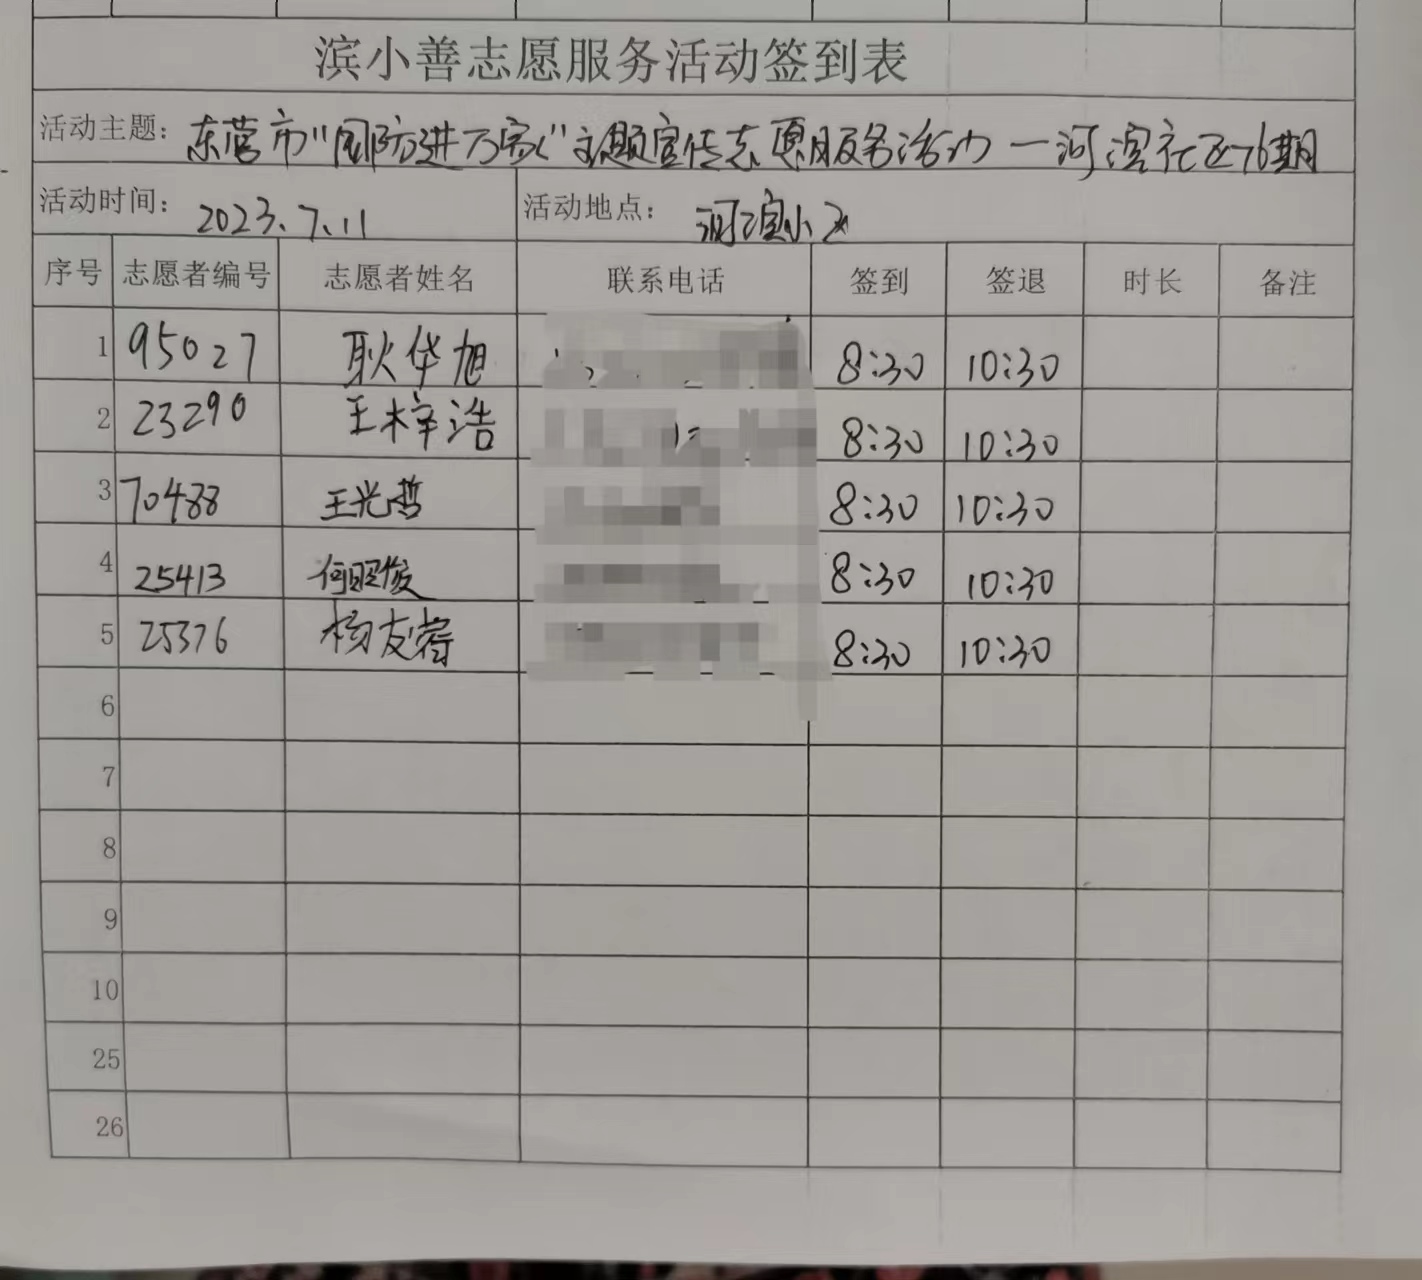 滨小善志愿服务活动签到表
活动主题：东营市"国防进万家"主题宣传志愿服务活动一河滨社区76期
活动时间：2023.7.11 活动地点：河滨小区
序号 志愿者编号 志愿者姓名 联系电话 签到 签退 时长 备注
1 95027 耿华旭 8:30 10:30
2 23290 王梓浩 8:30 10:30
3 70488 王光哲 8:30 10:30
4 25413 何昭俊 8:30 10:30
5 25376 杨友蓉 8:30 10:30
6
7
8
9
10
25
26